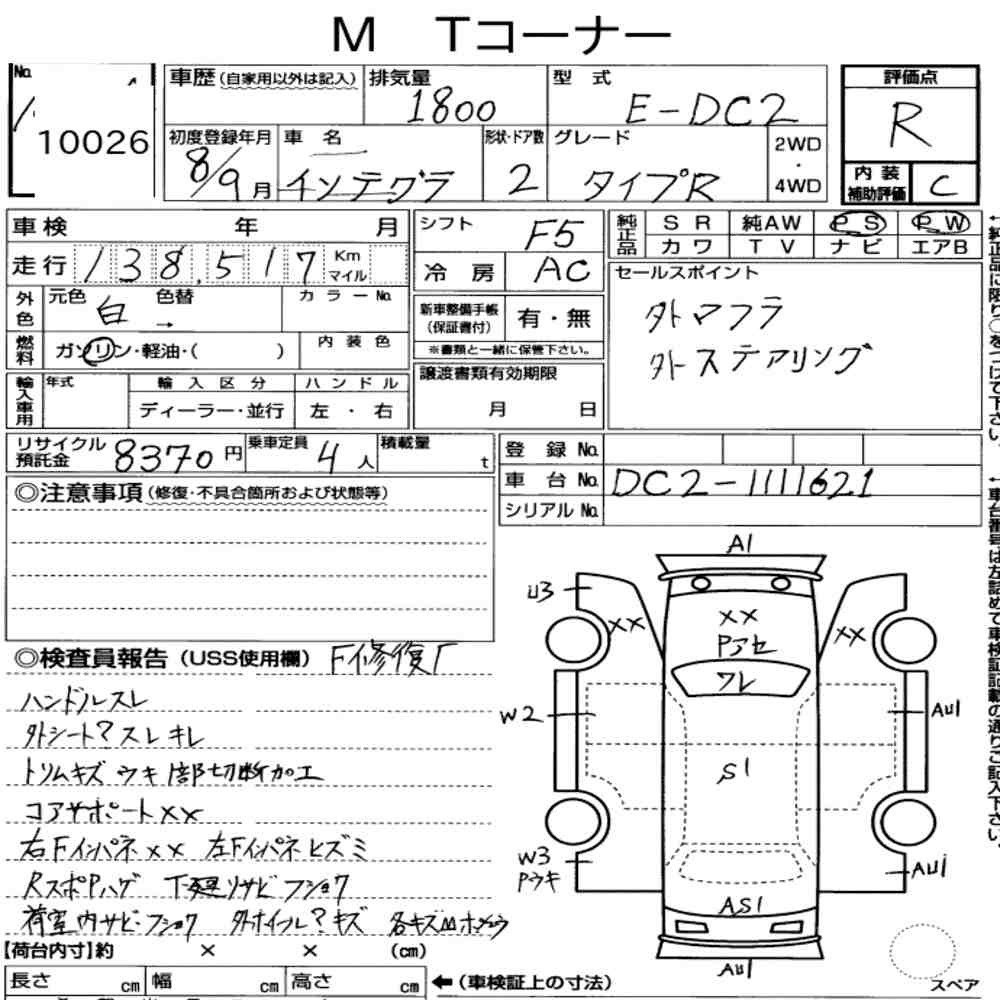 M Tコーナー
No.
10026
車歴 (自家用以外は記入)
排気量
1800
型式
E-DC2
評価点
R
初度登録年月
8/9月
車名
インテグラ
形状・ドア数
2
グレード
タイプR
2WD
・
4WD
内装
補助評価
C
車検 年 月
走行 138,517 Km
マイル
外色
元色 白
色替 →
カラーNo.
燃料
ガソリン・軽油・( )
内装色
輸入車用
年式
輸入区分
ディーラー・並行
ハンドル
左・右
シフト F5
冷房 AC
新車整備手帳
(保証書付)
有・無
※書類と一緒に保管下さい。
譲渡書類有効期限
月 日
純正品
SR 純AW PS PW
カワ TV ナビ エアB
セールスポイント
外マフラ
外ステアリング
←純正品に限り○をつけて下さい。
リサイクル
預託金
8370円
乗車定員 4人
積載量 t
登録No.
車台No. DC2-1111621
シリアルNo.
←車台番号は左詰めで車検証記載の通りご記入下さい。
◎注意事項(修復・不具合箇所および状態等)
◎検査員報告(USS使用欄) F修復歴
ハンドルスレ
外シート?スレキレ
トリムキズ ウキ 1部切断加工
コアサポートXX
右FインパネXX 左Fインパネヒズミ
RスポPハゲ 下廻りサビフショク
荷室内サビ・フショク 外ホイール?キズ 各キズ
A1
U3
XX
XX
Pアセ
XX
ワレ
W2
AU1
S1
W3
Pウキ
AU1
AS1
AU1
スペア
【荷台内寸】約 × × (cm)
長さ cm 幅 cm 高さ cm
←(車検証上の寸法)